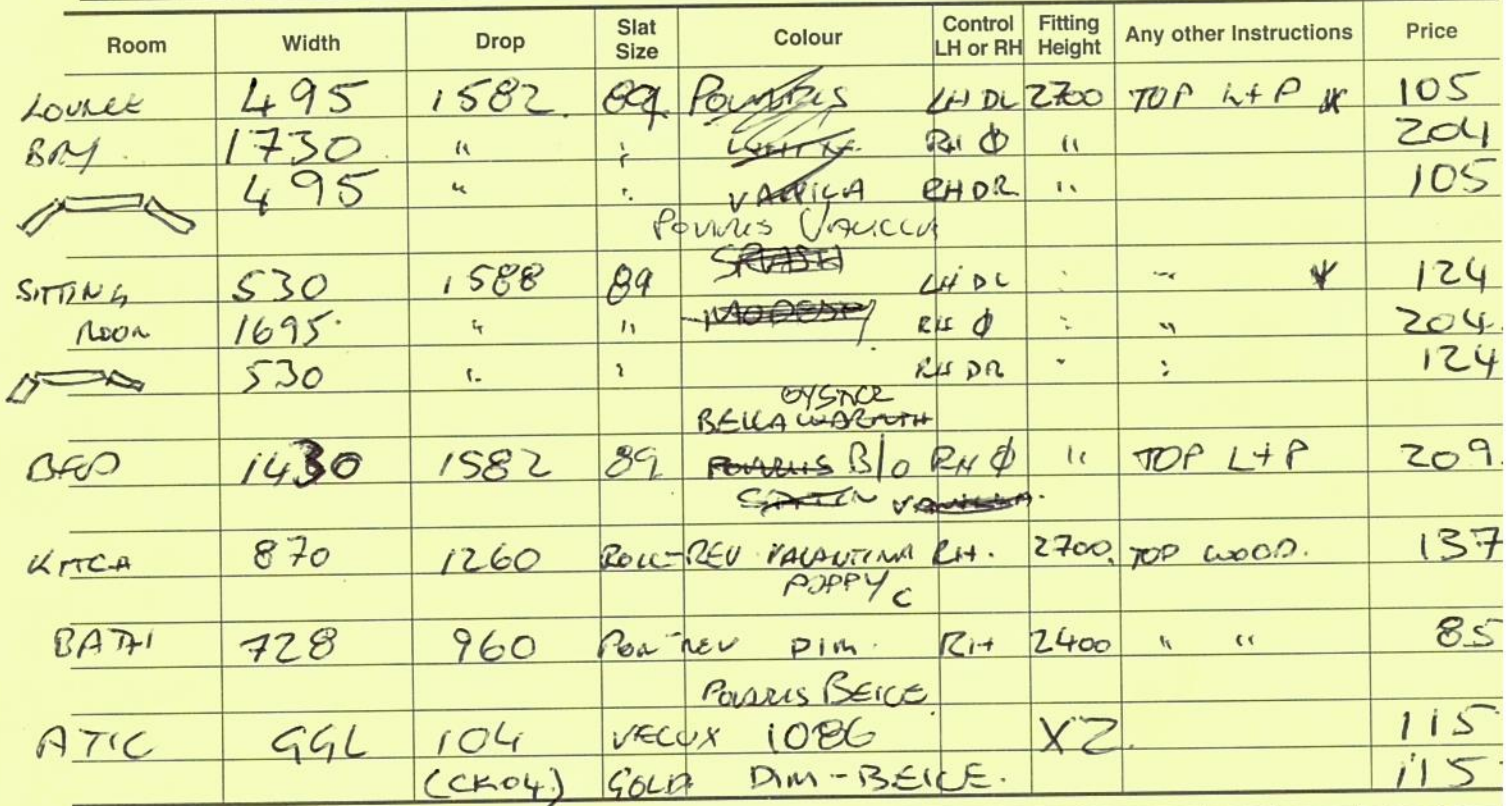 Room Width Drop Slat Size Colour Control LH or RH Fitting Height Any other Instructions Price
LOUNGE 495 1582 89 POLARIS LH DL 2700 TOP L+P 105
BAY 1730 " " WHITE RH " 204
495 " " VANILLA RH DR " 105
POLARIS VANILLA
SITTING 530 1588 89 LH DL " " 124
ROOM 1695 " " RH " " 204
530 " " RH DR " " 124
OYSTER
BELLA WARMTH
BED 1430 1582 89 POLARIS B/O RH " TOP L+P 209
SATIN VANILLA.
KITCH 870 1260 ROLL-REV VALANTINA RH. 2700. TOP WOOD. 137
POPPY/C
BATH 728 960 REV DIM. RH 2400 " " 85
POLARIS BEIGE
ATIC GGL 104 VELUX 1086 XZ. 115
(CK04) GOLD DIM-BEIGE. 115